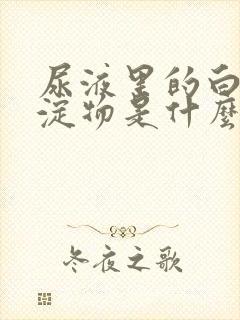 尿液里的白
淀物是什麼
冬夜之歌